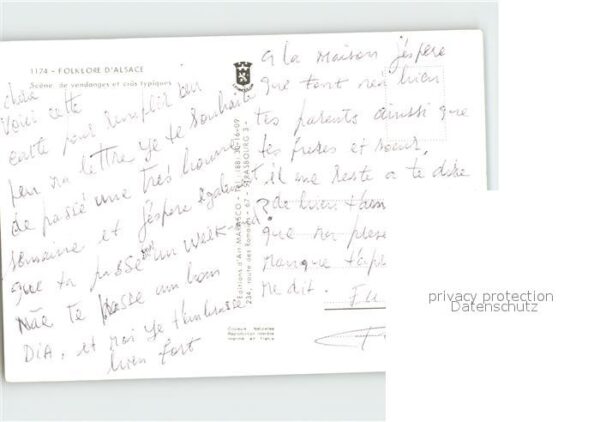 1174 - FOLKLORE D'ALSACE
Scène de vendanges et crus typiques
chère
Voici cette
carte pour remplir un
peu ma lettre Je te souhaite
de passé une très bonne
semaine et J'éspère également
que ta passé un week end?
Mãe te passe um bom
DIA, et moi Je t'embrasse
bien fort
a la maison J'éspère
que tout va bien
tes parents ainssi que
tes freres et soeur,
il me reste a te dire
que ma prese
manque
me dit.
Editions d'Art
234, route des Romains - 67 - STRASBOURG 3 -
Couleurs naturelles
Reproduction interdite
Imprimé en France
privacy protection
Datenschutz